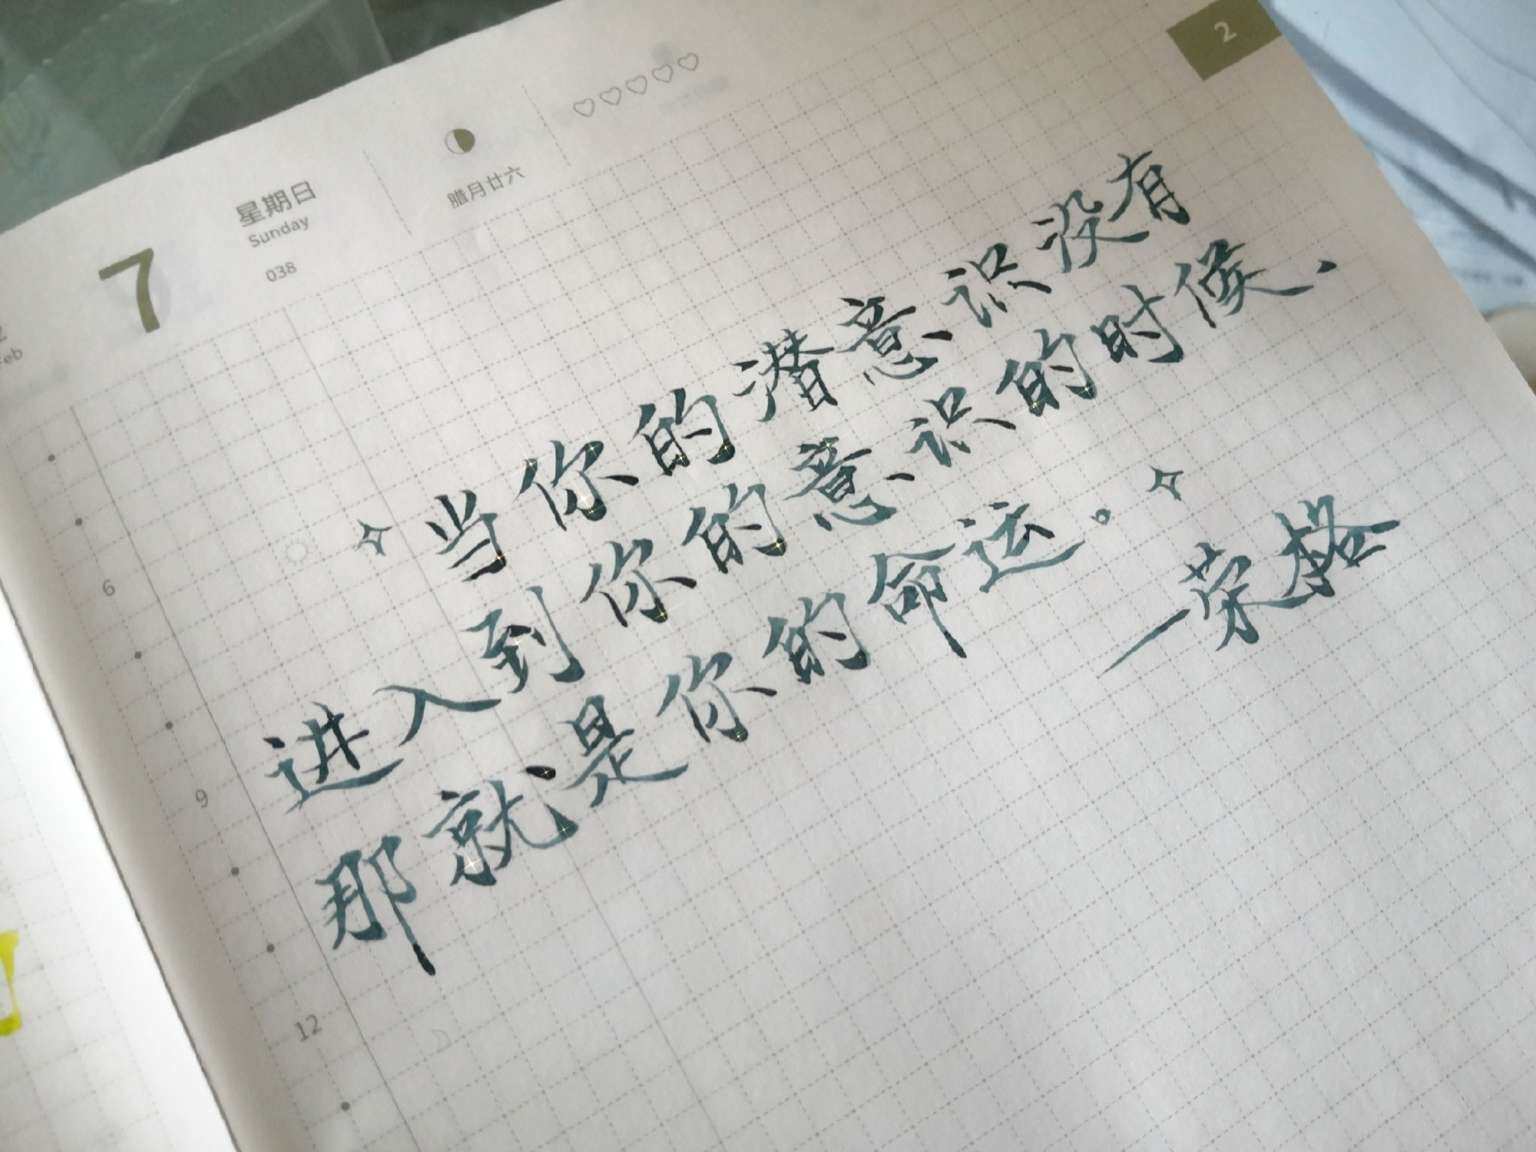 2
7
星期日
Sunday
038
腊月廿六
当你的潜意识没有
进入到你的意识的时候、
那就是你的命运。
—荣格
6
9
12